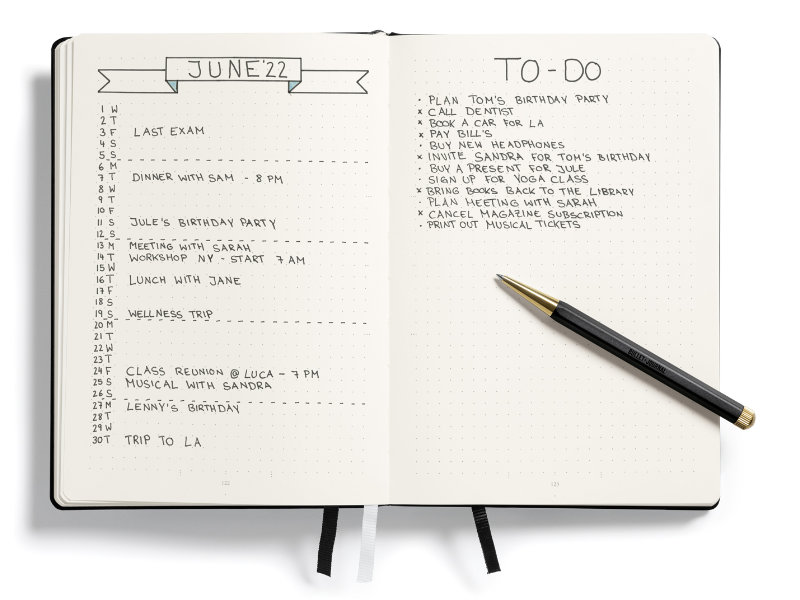 JUNE'22
1 W
2 T
3 F LAST EXAM
4 S
5 S
6 M
7 T DINNER WITH SAM - 8 PM
8 W
9 T
10 F
11 S JULE'S BIRTHDAY PARTY
12 S
13 M MEETING WITH SARAH
14 T WORKSHOP NY - START 7 AM
15 W
16 T LUNCH WITH JANE
17 F
18 S
19 S WELLNESS TRIP
20 M
21 T
22 W
23 T
24 F CLASS REUNION @ LUCA - 7 PM
25 S MUSICAL WITH SANDRA
26 S
27 M LENNY'S BIRTHDAY
28 T
29 W
30 T TRIP TO LA
122
TO-DO
· PLAN TOM'S BIRTHDAY PARTY
x CALL DENTIST
x BOOK A CAR FOR LA
x PAY BILL'S
· BUY NEW HEADPHONES
x INVITE SANDRA FOR TOM'S BIRTHDAY
· BUY A PRESENT FOR JULE
· SIGN UP FOR YOGA CLASS
x BRING BOOKS BACK TO THE LIBRARY
· PLAN MEETING WITH SARAH
x CANCEL MAGAZINE SUBSCRIPTION
· PRINT OUT MUSICAL TICKETS
123